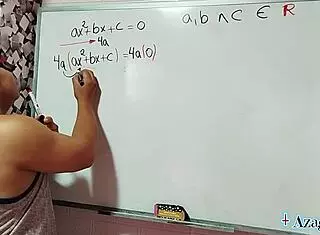 ax²+bx+c=0
4a
4a(ax²+bx+c)=4a(0)
a,b ∧ C ∈ R
+ Azag